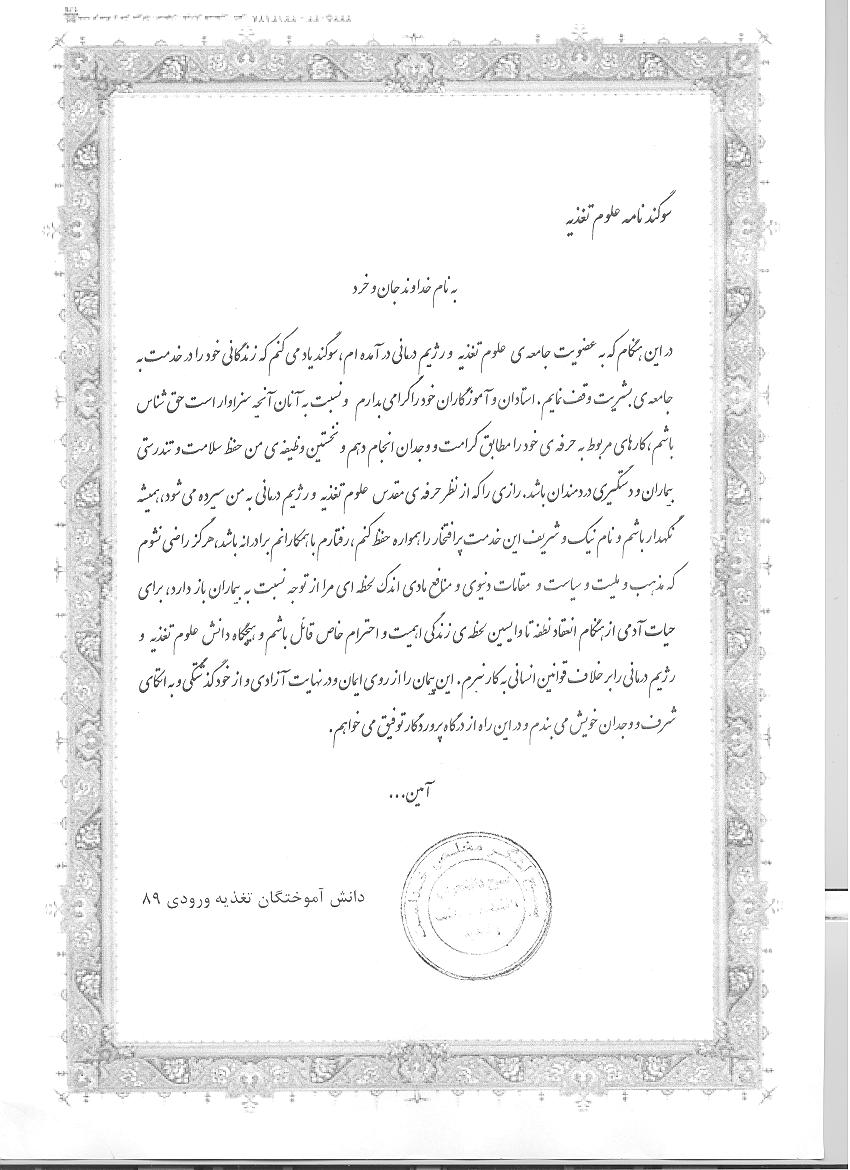 سوگند نامه علوم تغذیه
به نام خداوند جان و خرد
در این هنگام که به عضویت جامعه ی علوم تغذیه و رژیم درمانی در آمده ام، سوگند یاد می کنم که زندگانی خود را در خدمت به
جامعه ی بشریت وقف نمایم. استادان و آموزگاران خود را گرامی بدارم و نسبت به آنان آنچه سزاوار است حق شناس
باشم، کارهای مربوط به حرفه ی خود را مطابق کرامت و وجدان انجام دهم و نخستین وظیفه ی من حفظ سلامت و تندرستی
بیماران و دستگیری دردمندان باشد. رازی را که از نظر حرفه ی مقدس علوم تغذیه و رژیم درمانی به من سپرده می شود، همیشه
نگهدار باشم و نام نیک و شریف این خدمت پرافتخار را همواره حفظ کنم، رفتارم با همکارانم برادرانه باشد، هرگز راضی نشوم
که مذهب و ملیت و سیاست و مقامات دنیوی و منافع مادی اندک لحظه ای مرا از توجه نسبت به بیماران باز دارد، برای
حیات آدمی از هنگام انعقاد نطفه تا واپسین لحظه ی زندگی اهمیت و احترام خاص قائل باشم و هیچگاه دانش علوم تغذیه و
رژیم درمانی را بر خلاف قوانین انسانی به کار نبرم. این پیمان را از روی ایمان و در نهایت آزادی و از خود گذشتگی و به اتکای
شرف و وجدان خویش می بندم و در این راه از درگاه پروردگار توفیق می خواهم.
آمین...
دانش آموختگان تغذیه ورودی ۸۹